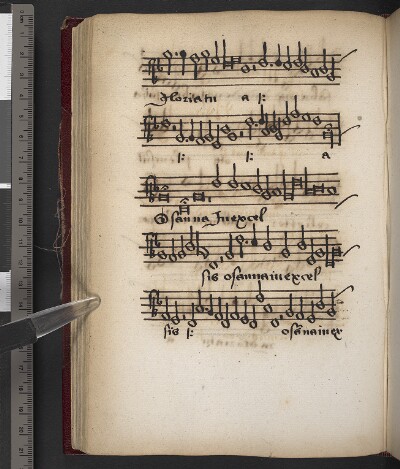 Gloria tu a ſ:
ſ: ſ: a
Osanna In excel
sis osanna in excel
sis ſ: osanna in ex